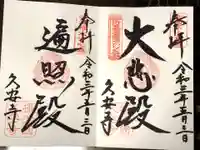 奉拝
大悲殿
令和三年五月三日
久安寺
奉拝
遍照殿
令和三年五月三日
久安寺